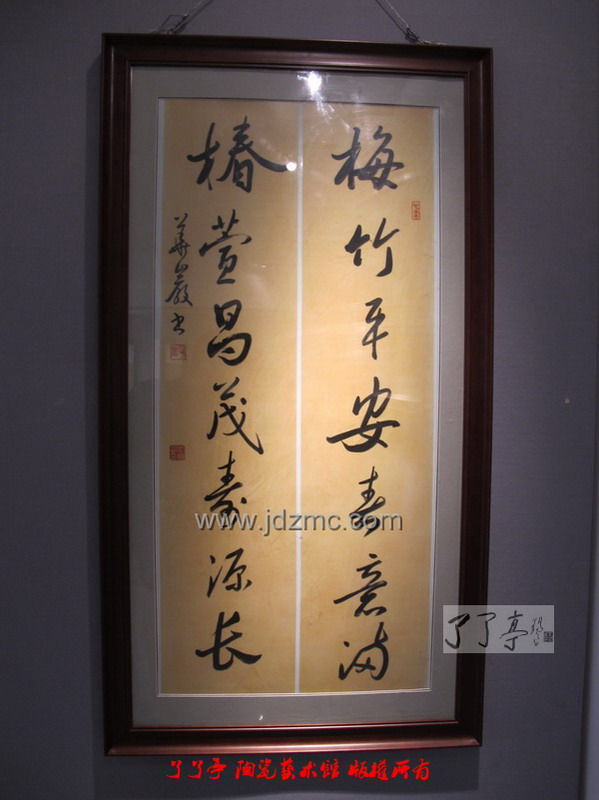 梅竹平安春意满
椿萱昌茂寿源长
華巖书
www.jdzmc.com
了了亭
了了亭 陶瓷藝术馆 版權所有